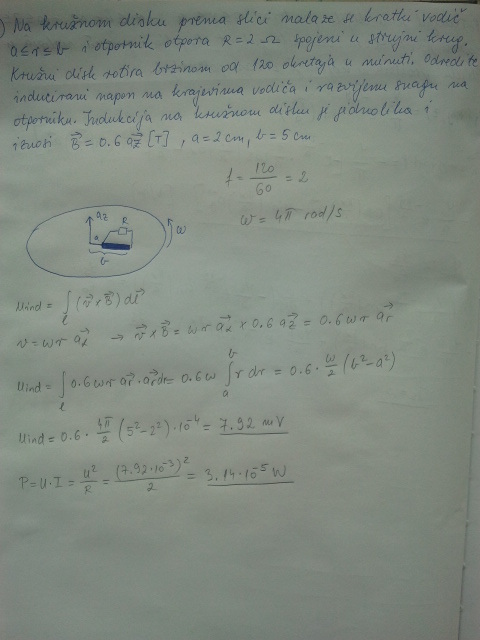 ) Na kružnom disku prema slici nalaze se kratki vodič
a ≤ r ≤ b i otpornik otpora R = 2 Ω spojeni u strujni krug.
Kružni disk rotira brzinom od 120 okretaja u minuti. Odredite
inducirani napon na krajevima vodiča i razvijenu snagu na
otporniku. Indukcija na kružnom disku je jednolika i
iznosi B⃗ = 0.6 a⃗z [T] , a = 2 cm, b = 5 cm
f = 120/60 = 2
ω = 4π rad/s
az R
a ω
b
Uind = ∫l (v⃗ x B⃗) dl⃗
v = ωr a⃗α → v⃗ x B⃗ = ωr a⃗α x 0.6 a⃗z = 0.6 ωr a⃗r
Uind = ∫l 0.6 ωr a⃗r · a⃗r dr = 0.6 ω ∫a^b r dr = 0.6 · ω/2 (b² - a²)
Uind = 0.6 · 4π/2 (5² - 2²) · 10⁻⁴ = 7.92 mV
P = U · I = U²/R = (7.92 · 10⁻³)²/2 = 3.14 · 10⁻⁵ W